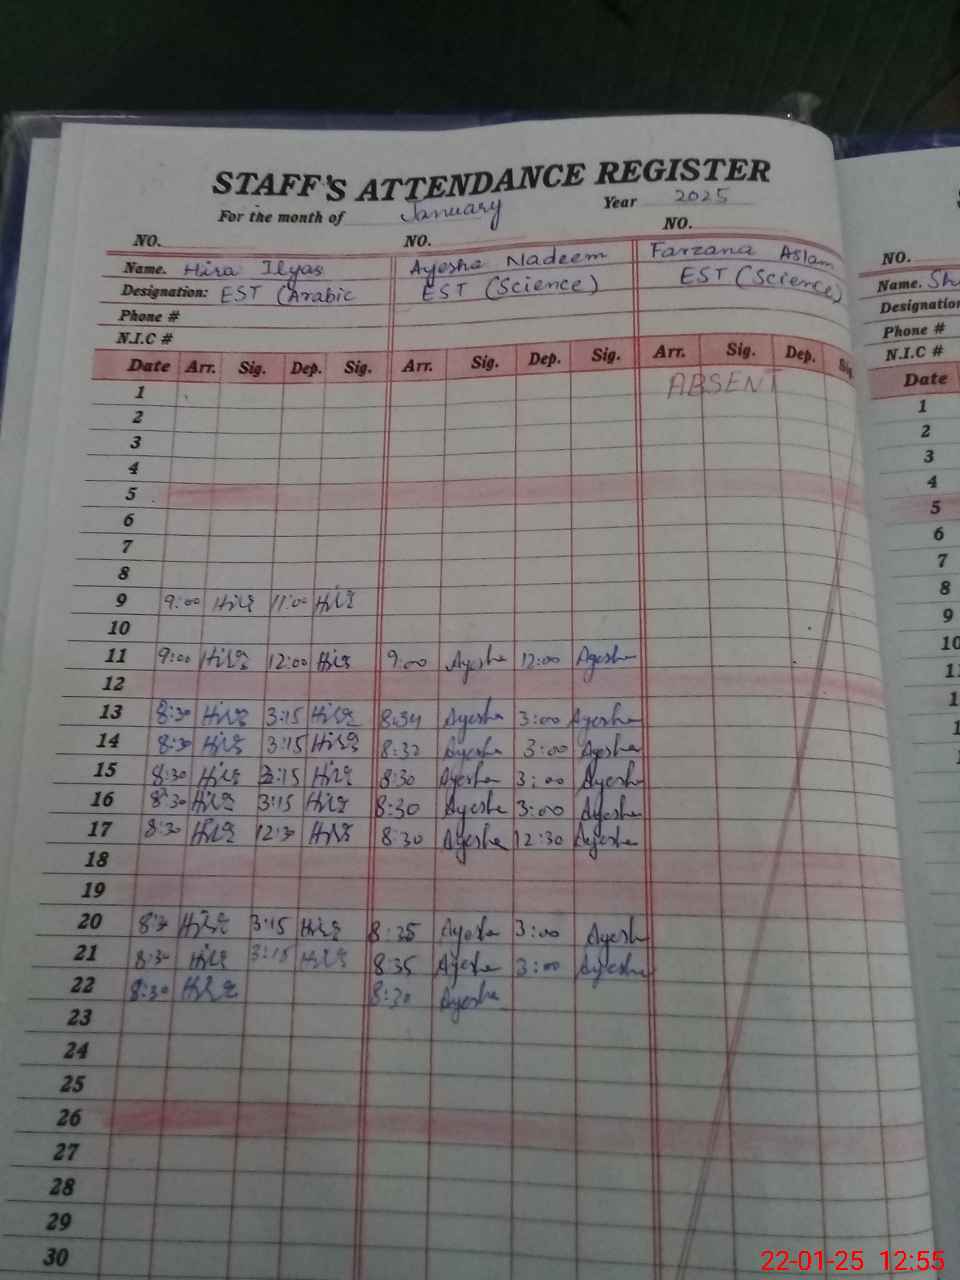 STAFF'S ATTENDANCE REGISTER
For the month of January Year 2025
NO. NO. NO.
Name. Hira Ilyas Ayesha Nadeem Farzana Aslam
Designation: EST (Arabic EST (Science) EST (Science)
Phone #
N.I.C #
Date Arr. Sig. Dep. Sig. Arr. Sig. Dep. Sig. Arr. Sig. Dep. Sig.
1 ABSENT
2
3
4
5
6
7
8
9 9:00 Hira 11:00 Hira
10
11 9:00 Hira 12:00 Hira 9:00 Ayesha 12:00 Ayesha
12
13 8:30 Hira 3:15 Hira 8:34 Ayesha 3:00 Ayesha
14 8:30 Hira 3:15 Hira 8:32 Ayesha 3:00 Ayesha
15 8:30 Hira 3:15 Hira 8:30 Ayesha 3:00 Ayesha
16 8:30 Hira 3:15 Hira 8:30 Ayesha 3:00 Ayesha
17 8:30 Hira 12:30 Hira 8:30 Ayesha 12:30 Ayesha
18
19
20 8:30 Hira 3:15 Hira 8:35 Ayesha 3:00 Ayesha
21 8:30 Hira 3:15 Hira 8:35 Ayesha 3:00 Ayesha
22 8:30 Hira 8:30 Ayesha
23
24
25
26
27
28
29
30
NO.
Name. Sh
Designation
Phone #
N.I.C #
Date
1
2
3
4
5
6
7
8
9
10
22-01-25 12:55